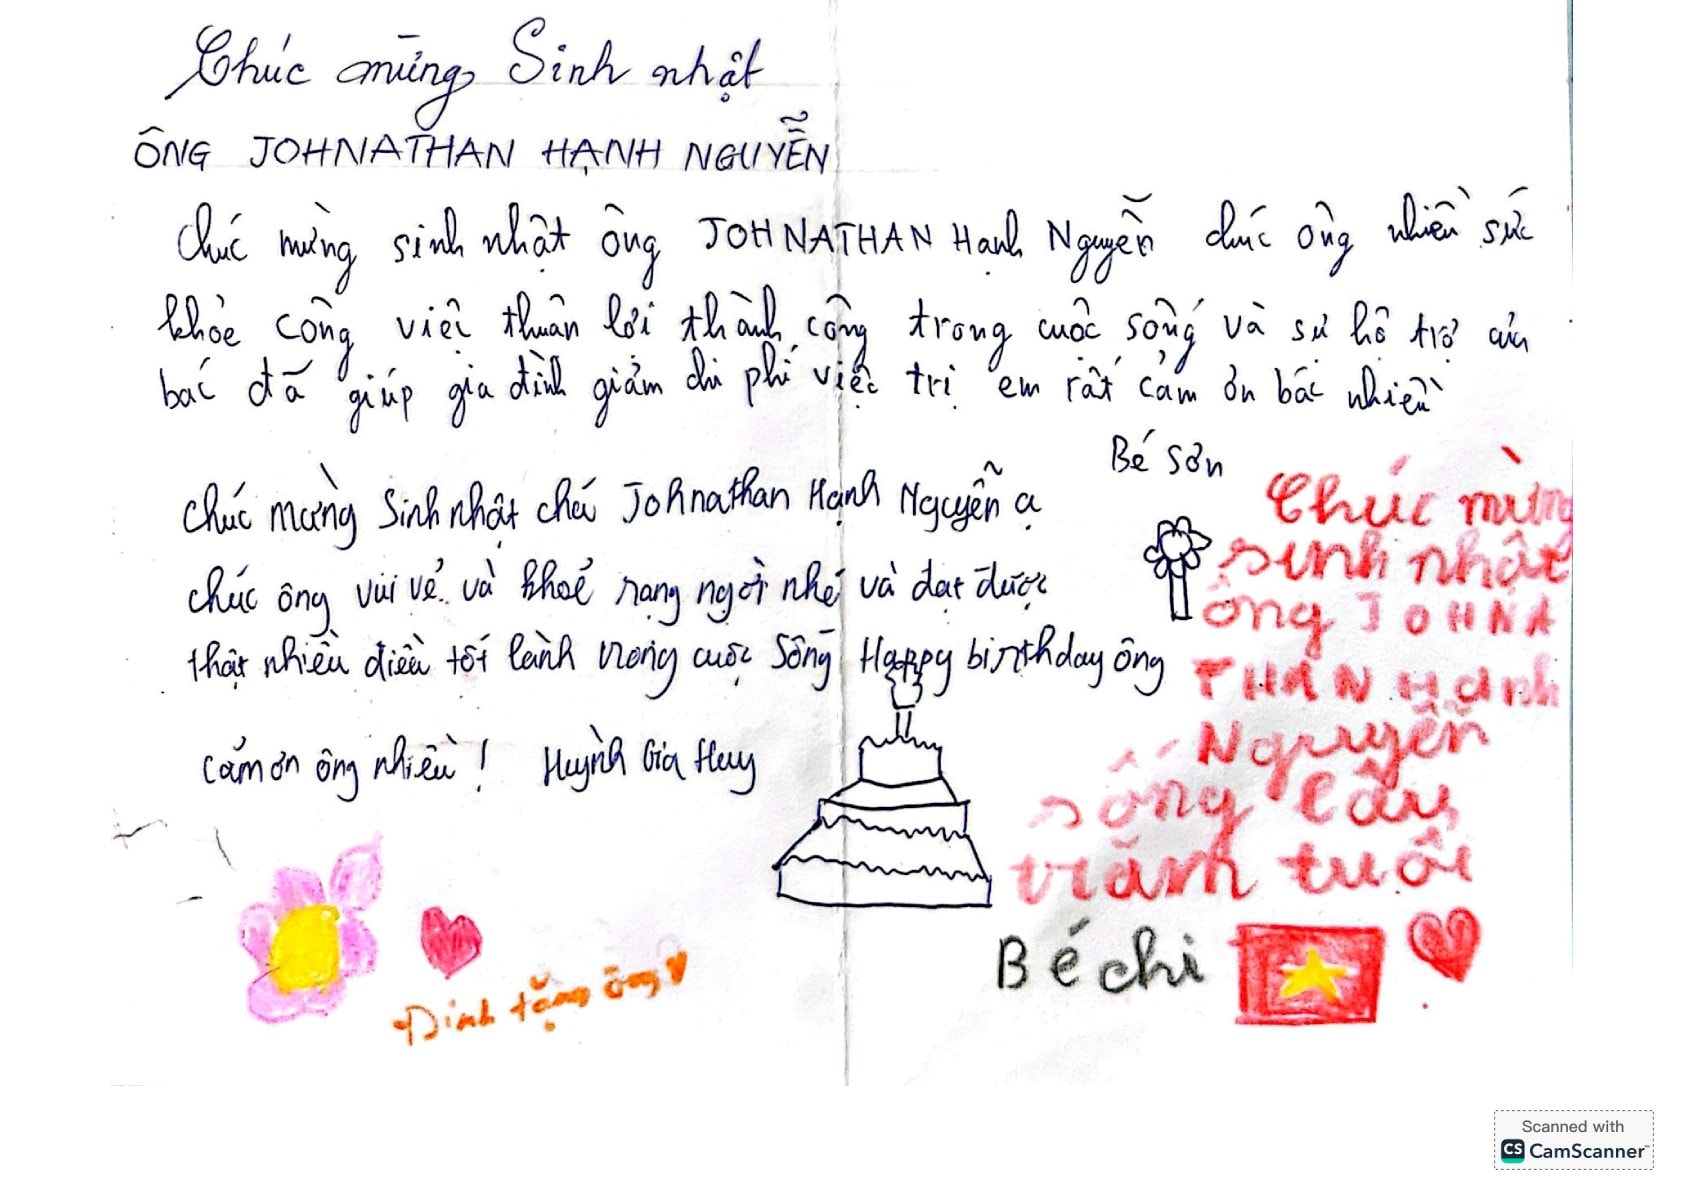 Chúc mừng Sinh nhật
ÔNG JOHNATHAN HẠNH NGUYỄN
Chúc mừng sinh nhật ông JOHNATHAN Hạnh Nguyễn chúc ông nhiều sức
khỏe công việc thuân lợi thành công trong cuôc sống và sư hô trợ của
bác đã giúp gia đình giảm chi phí việc trị em rất cảm ơn bác nhiều
Bé Sơn
Chúc mừng Sinh nhật Johnathan Hạnh Nguyễn ạ
chúc ông vui vẻ và khoẻ rạng ngời nhé và đạt được
thật nhiều điều tốt lành trong cuộc Sống Happy birthday ông
cảm ơn ông nhiều! Huỳnh Gia Huy
Chúc mừng
sinh nhật
ông JOHNA
THAN Hạnh
Nguyễn
sống lâu
trăm tuổi
Bé chi
Dính tặng ông
Scanned with
CS CamScanner